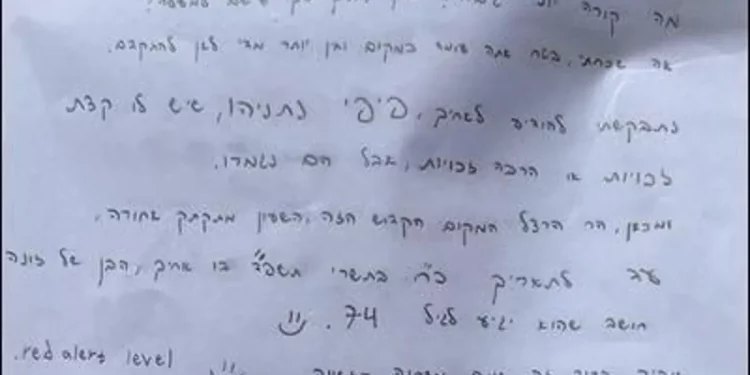 מה קורה
אה שכחתי, בטח אתה שומר במקום ואין יותר מדי לאן להתקדם.
נתבקשתי להודיע לאחיך, פיפי נתניהו, שיש לו קצת
זכויות או הרבה זכויות, אבל הם נגמרו.
ומכאן, הר הרצל המקום הקדוש הזה, השעון מתקתק אחורה,
עד לתאריך כ"ח בתשרי תשפ"ד בו אחיך, הבן של זונה
חושב שהוא יגיע לגיל 74.
red alert level.